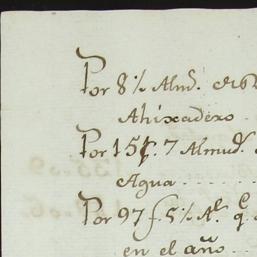 Por 8½ Almd. de
Ahixadero
Por 15f. 7 Almud.
Agua ....
Por 97 f. 5½ Al. q.e
en el año ..